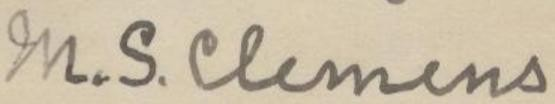 M.S. Clemens